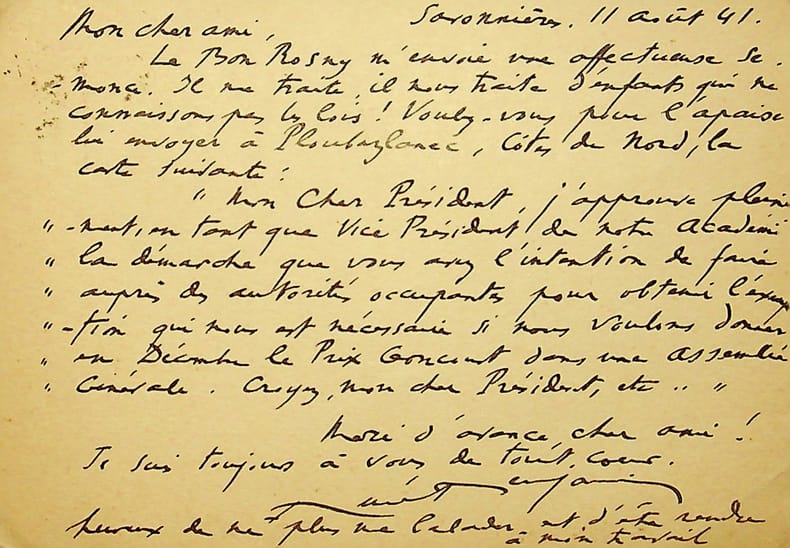 Savonnières. 11 août 41.
Mon cher ami,
Le Bon Rosny m'envoie une affectueuse se-
-monce. Il me traite, il nous traite d'enfants qui ne
connaissons pas les lois ! Voulez-vous pour l'apaiser
lui envoyer à Ploubazlanec, Côtes du Nord, la
carte suivante :
" Mon Cher Président, j'approuve pleine
" -ment, en tant que Vice Président de notre Académie
" la démarche que vous avez l'intention de faire
" auprès des autorités occupantes pour obtenir l'exemp
" -tion qui nous est nécessaire si nous voulons donner
" en Décembre le Prix Goncourt dans une Assemblée
" Générale. Croyez, mon cher Président, etc .. "
Merci d'avance, cher ami !
Je suis toujours à vous de tout coeur.
heureux de ne plus me balader, et d'être rendu
à mon travail